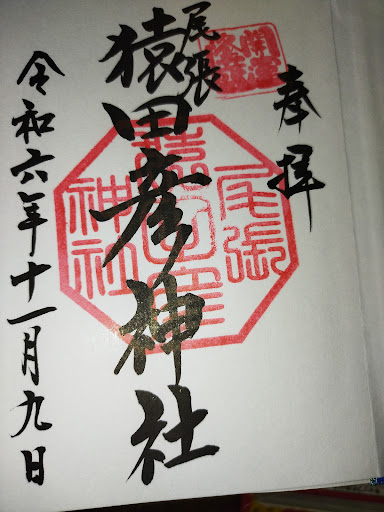 奉拝
尾張
猿田彦神社
令和六年十一月九日
尾張
猿田彦
神社